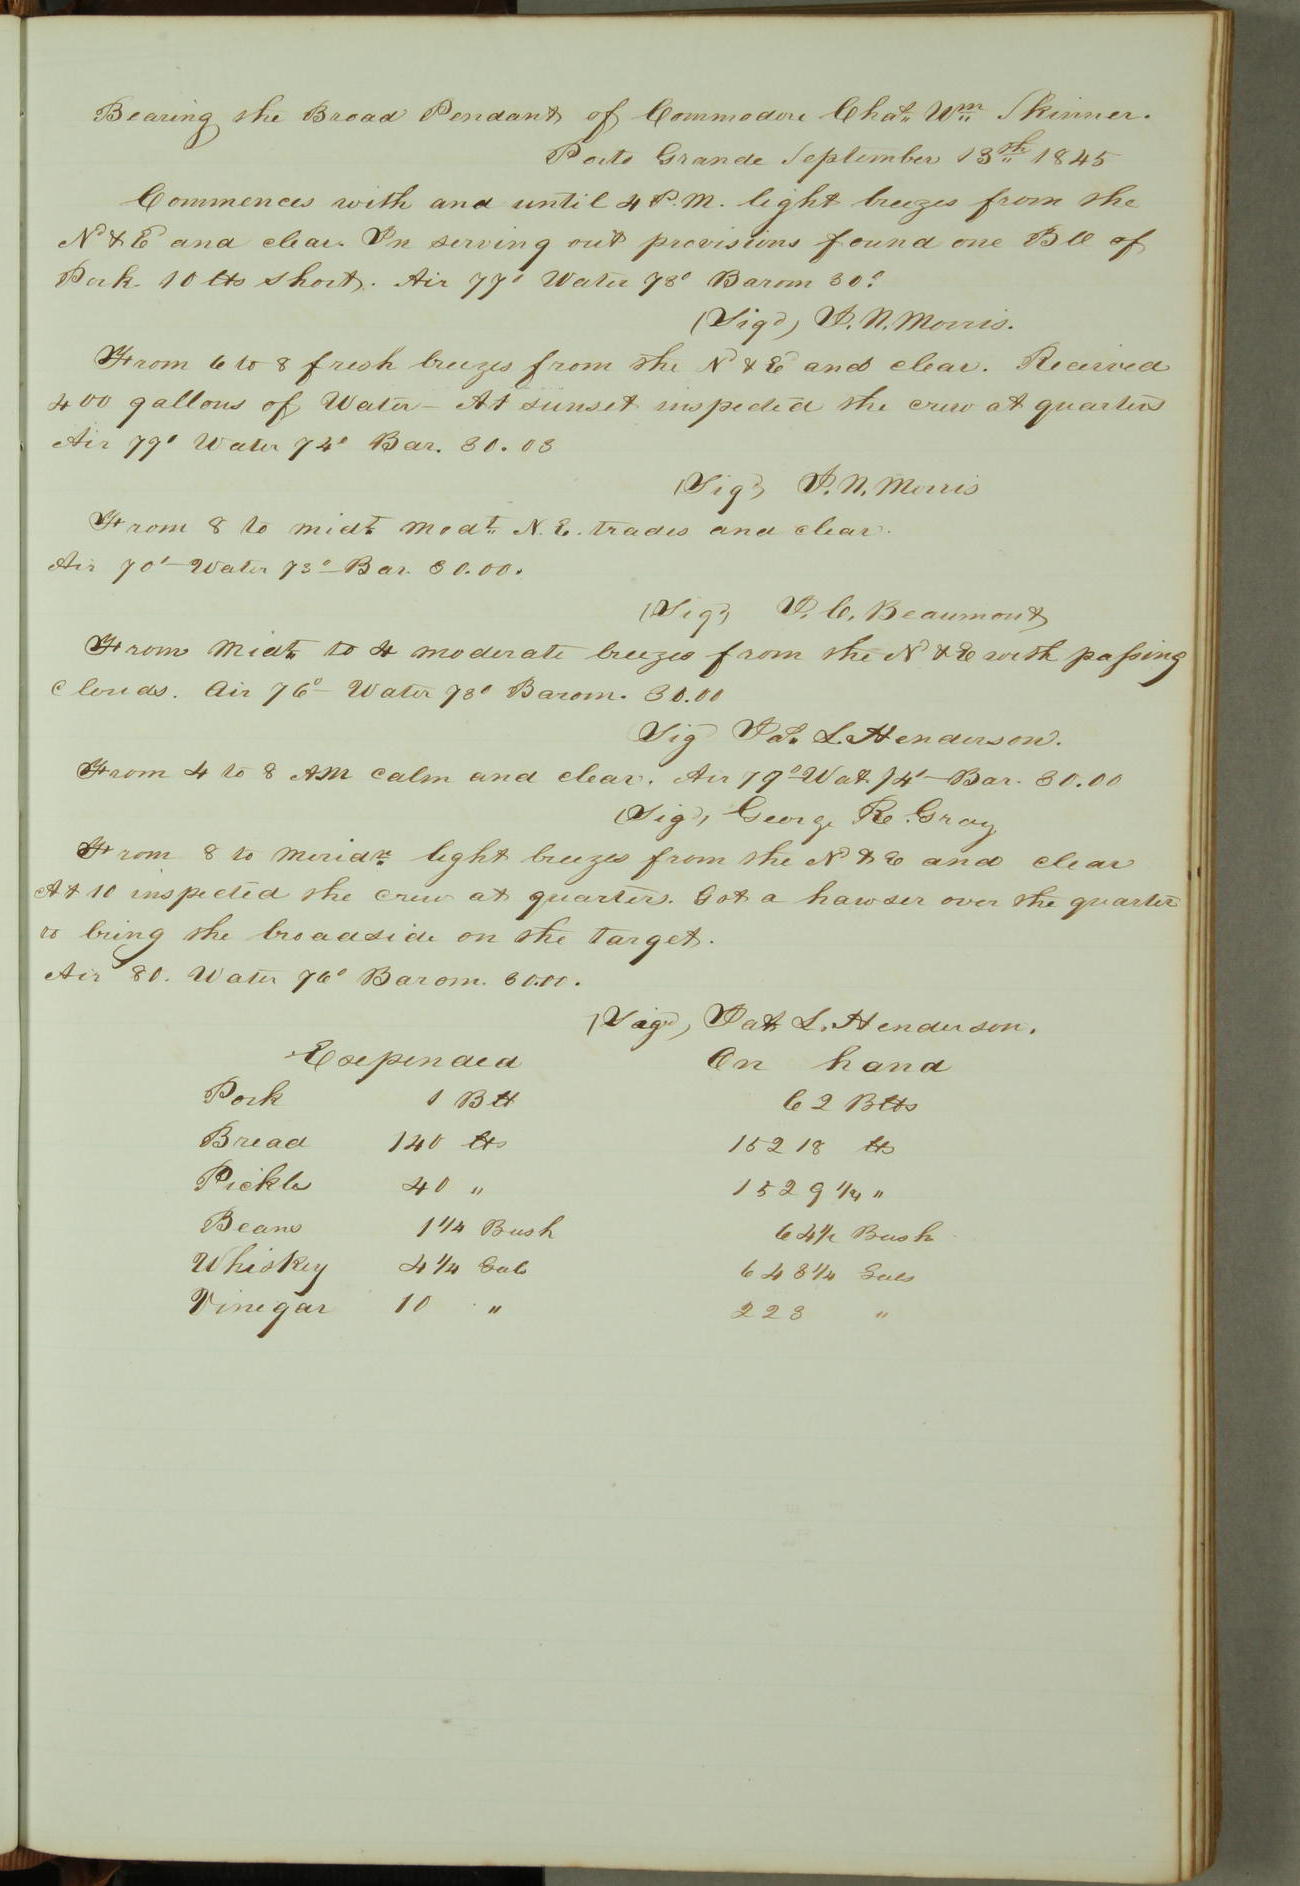 Bearing the Broad Pendant of Commodore Chas Wm Skinner.
Porto Grande September 13th 1845
Commences with and until 4 P.M. light breezes from the
N & E and clear. In serving out provisions found one Bll of
Pork 10 lbs short. Air 77° Water 73° Barom 30.°
(Sigd) I. N. Morris.
From 6 to 8 fresh breezes from the N & E and clear. Received
400 gallons of Water — At sunset inspected the crew at quarters
Air 79° Water 74° Bar. 30.03
(Sigd) I. N. Morris
From 8 to midt modt N.E. trades and clear.
Air 70° — Water 73° — Bar. 30.00.
(Sigd) J. C. Beaumont
From Midt to 4 moderate breezes from the N & E with passing
clouds. Air 76° — Water 73° Barom. 30.00
Sig Pat. L. Henderson.
From 4 to 8 AM calm and clear. Air 79° Wat. 74° — Bar. 30.00
(Sigd) George R. Gray
From 8 to Meridn light breezes from the N & E and clear
At 10 inspected the crew at quarters. Got a hawser over the quarter
to bring the broadside on the target.
Air 80. Water 76° Barom. 30.00.
(Sigd) Pat L. Henderson.
Expended On hand
Pork 1 Bll 62 Blls
Bread 140 lbs 15218 lbs
Pickles 40 " 1529 1/4 "
Beans 1 1/4 Bush 64 1/2 Bush
Whiskey 4 1/4 Gals 643 1/4 Gals
Vinegar 10 " 223 "